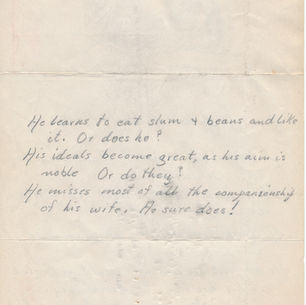 He learns to eat slum & beans and like
it. Or does he?
His ideals become great, as his aim is
noble Or do they?
He misses most of all the companionship
of his wife. He sure does!